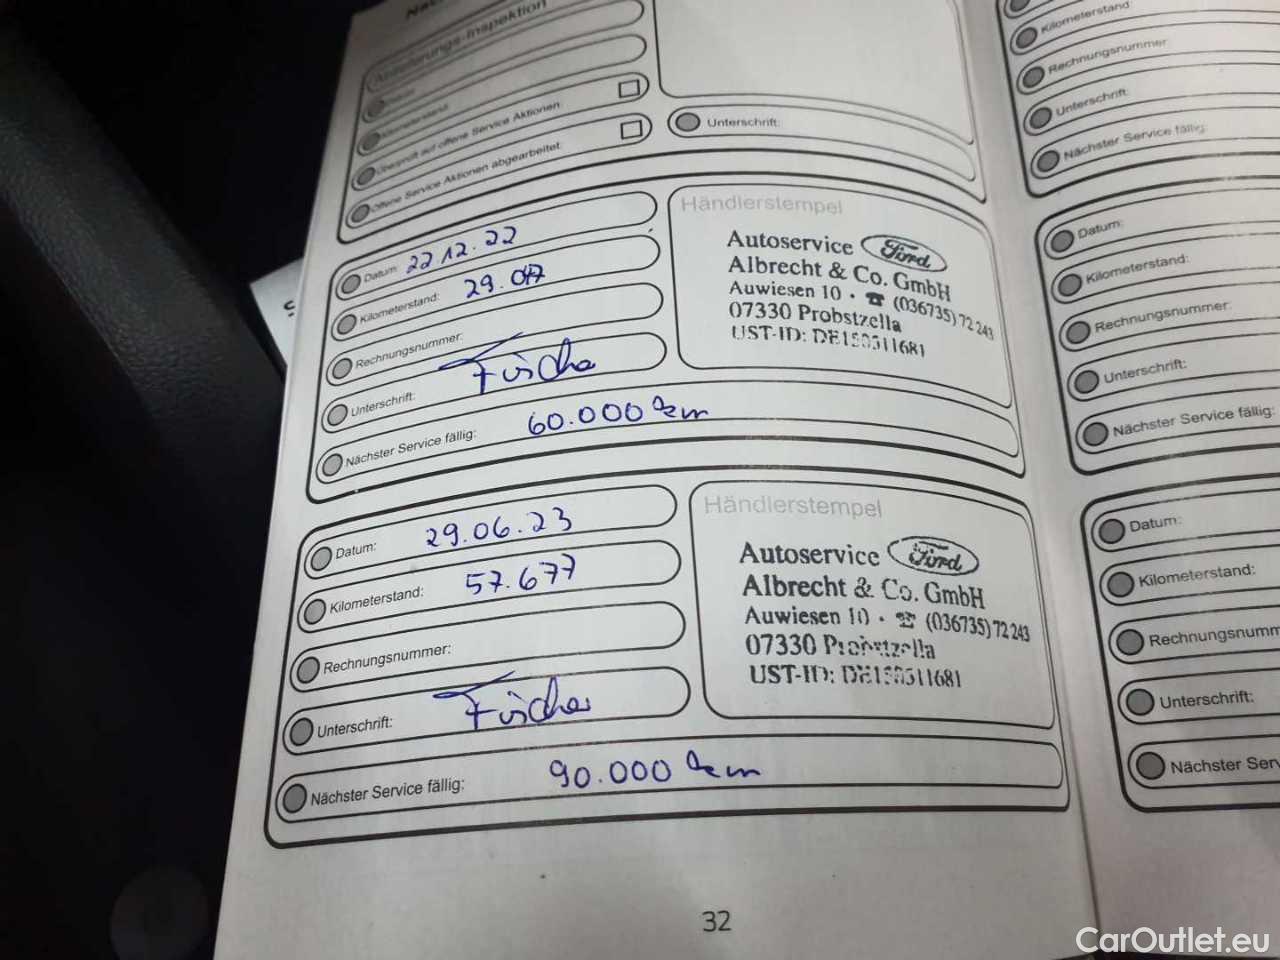 Ablieferungs-Inspektion
Überprüft auf offene Service Aktionen:
Offene Service Aktionen abgearbeitet:
Unterschrift:
Datum: 22.12.22
Kilometerstand: 29.047
Rechnungsnummer:
Unterschrift:
Nächster Service fällig: 60.000 km
Händlerstempel
Autoservice Ford
Albrecht & Co. GmbH
Auwiesen 10 · ☎ (036735) 72 243
07330 Probstzella
UST-ID: DE150511681
Datum: 29.06.23
Kilometerstand: 57.677
Rechnungsnummer:
Unterschrift:
Nächster Service fällig: 90.000 km
Händlerstempel
Autoservice Ford
Albrecht & Co. GmbH
Auwiesen 10 · ☎ (036735) 72 243
07330 Probstzella
UST-ID: DE150511681
32
Kilometerstand:
Rechnungsnummer:
Unterschrift:
Nächster Service fällig:
Datum:
Kilometerstand:
Rechnungsnummer:
Unterschrift:
Nächster Service fällig:
Datum:
Kilometerstand:
Rechnungsnumm
Unterschrift:
Nächster Serv
CarOutlet.eu